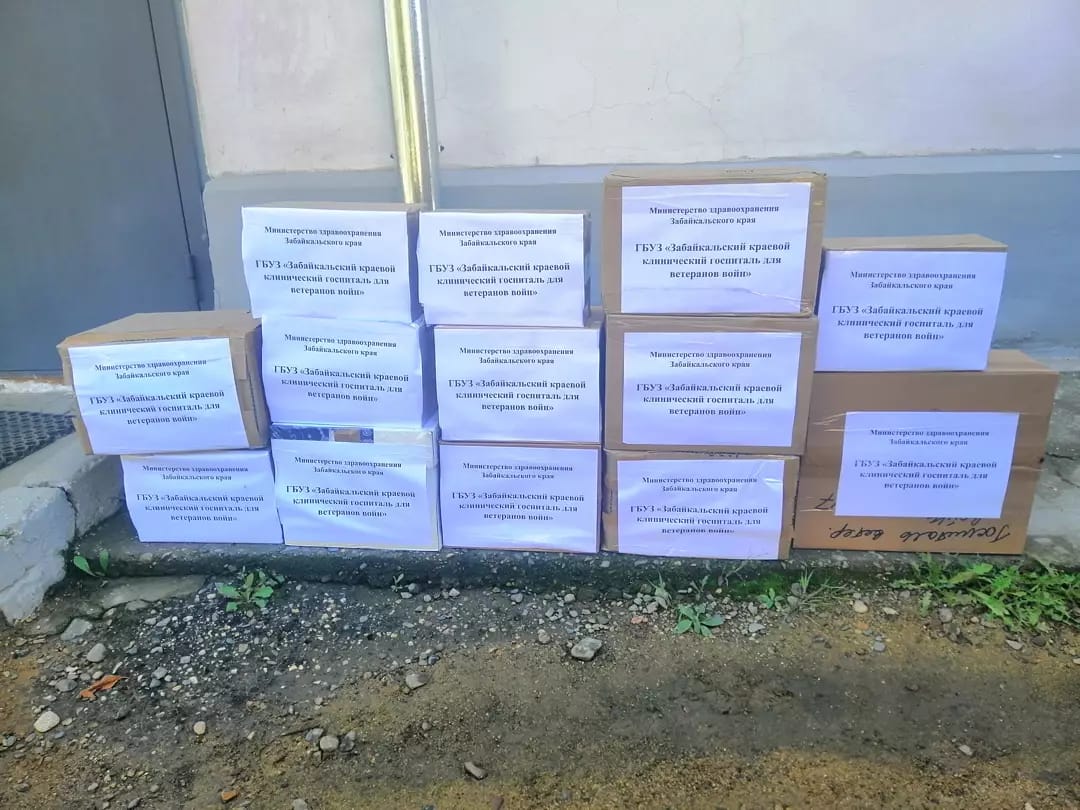 Министерство здравоохранения
Забайкальского края
ГБУЗ «Забайкальский краевой
клинический госпиталь для
ветеранов войн»
Министерство здравоохранения
Забайкальского края
ГБУЗ «Забайкальский краевой
клинический госпиталь для
ветеранов войн»
Министерство здравоохранения
Забайкальского края
ГБУЗ «Забайкальский краевой
клинический госпиталь для
ветеранов войн»
Министерство здравоохранения
Забайкальского края
ГБУЗ «Забайкальский краевой
клинический госпиталь для
ветеранов войн»
Министерство здравоохранения
Забайкальского края
ГБУЗ «Забайкальский краевой
клинический госпиталь для
ветеранов войн»
Министерство здравоохранения
Забайкальского края
ГБУЗ «Забайкальский краевой
клинический госпиталь для
ветеранов войн»
Министерство здравоохранения
Забайкальского края
ГБУЗ «Забайкальский краевой
клинический госпиталь для
ветеранов войн»
Министерство здравоохранения
Забайкальского края
ГБУЗ «Забайкальский краевой
клинический госпиталь для
ветеранов войн»
Министерство здравоохранения
Забайкальского края
ГБУЗ «Забайкальский краевой
клинический госпиталь для
ветеранов войн»
Министерство здравоохранения
Забайкальского края
ГБУЗ «Забайкальский краевой
клинический госпиталь для
ветеранов войн»
Министерство здравоохранения
Забайкальского края
ГБУЗ «Забайкальский краевой
клинический госпиталь для
ветеранов войн»
Министерство здравоохранения
Забайкальского края
ГБУЗ «Забайкальский краевой
клинический госпиталь для
ветеранов войн»
Министерство здравоохранения
Забайкальского края
ГБУЗ «Забайкальский краевой
клинический госпиталь для
ветеранов войн»
Госпиталь ветер.